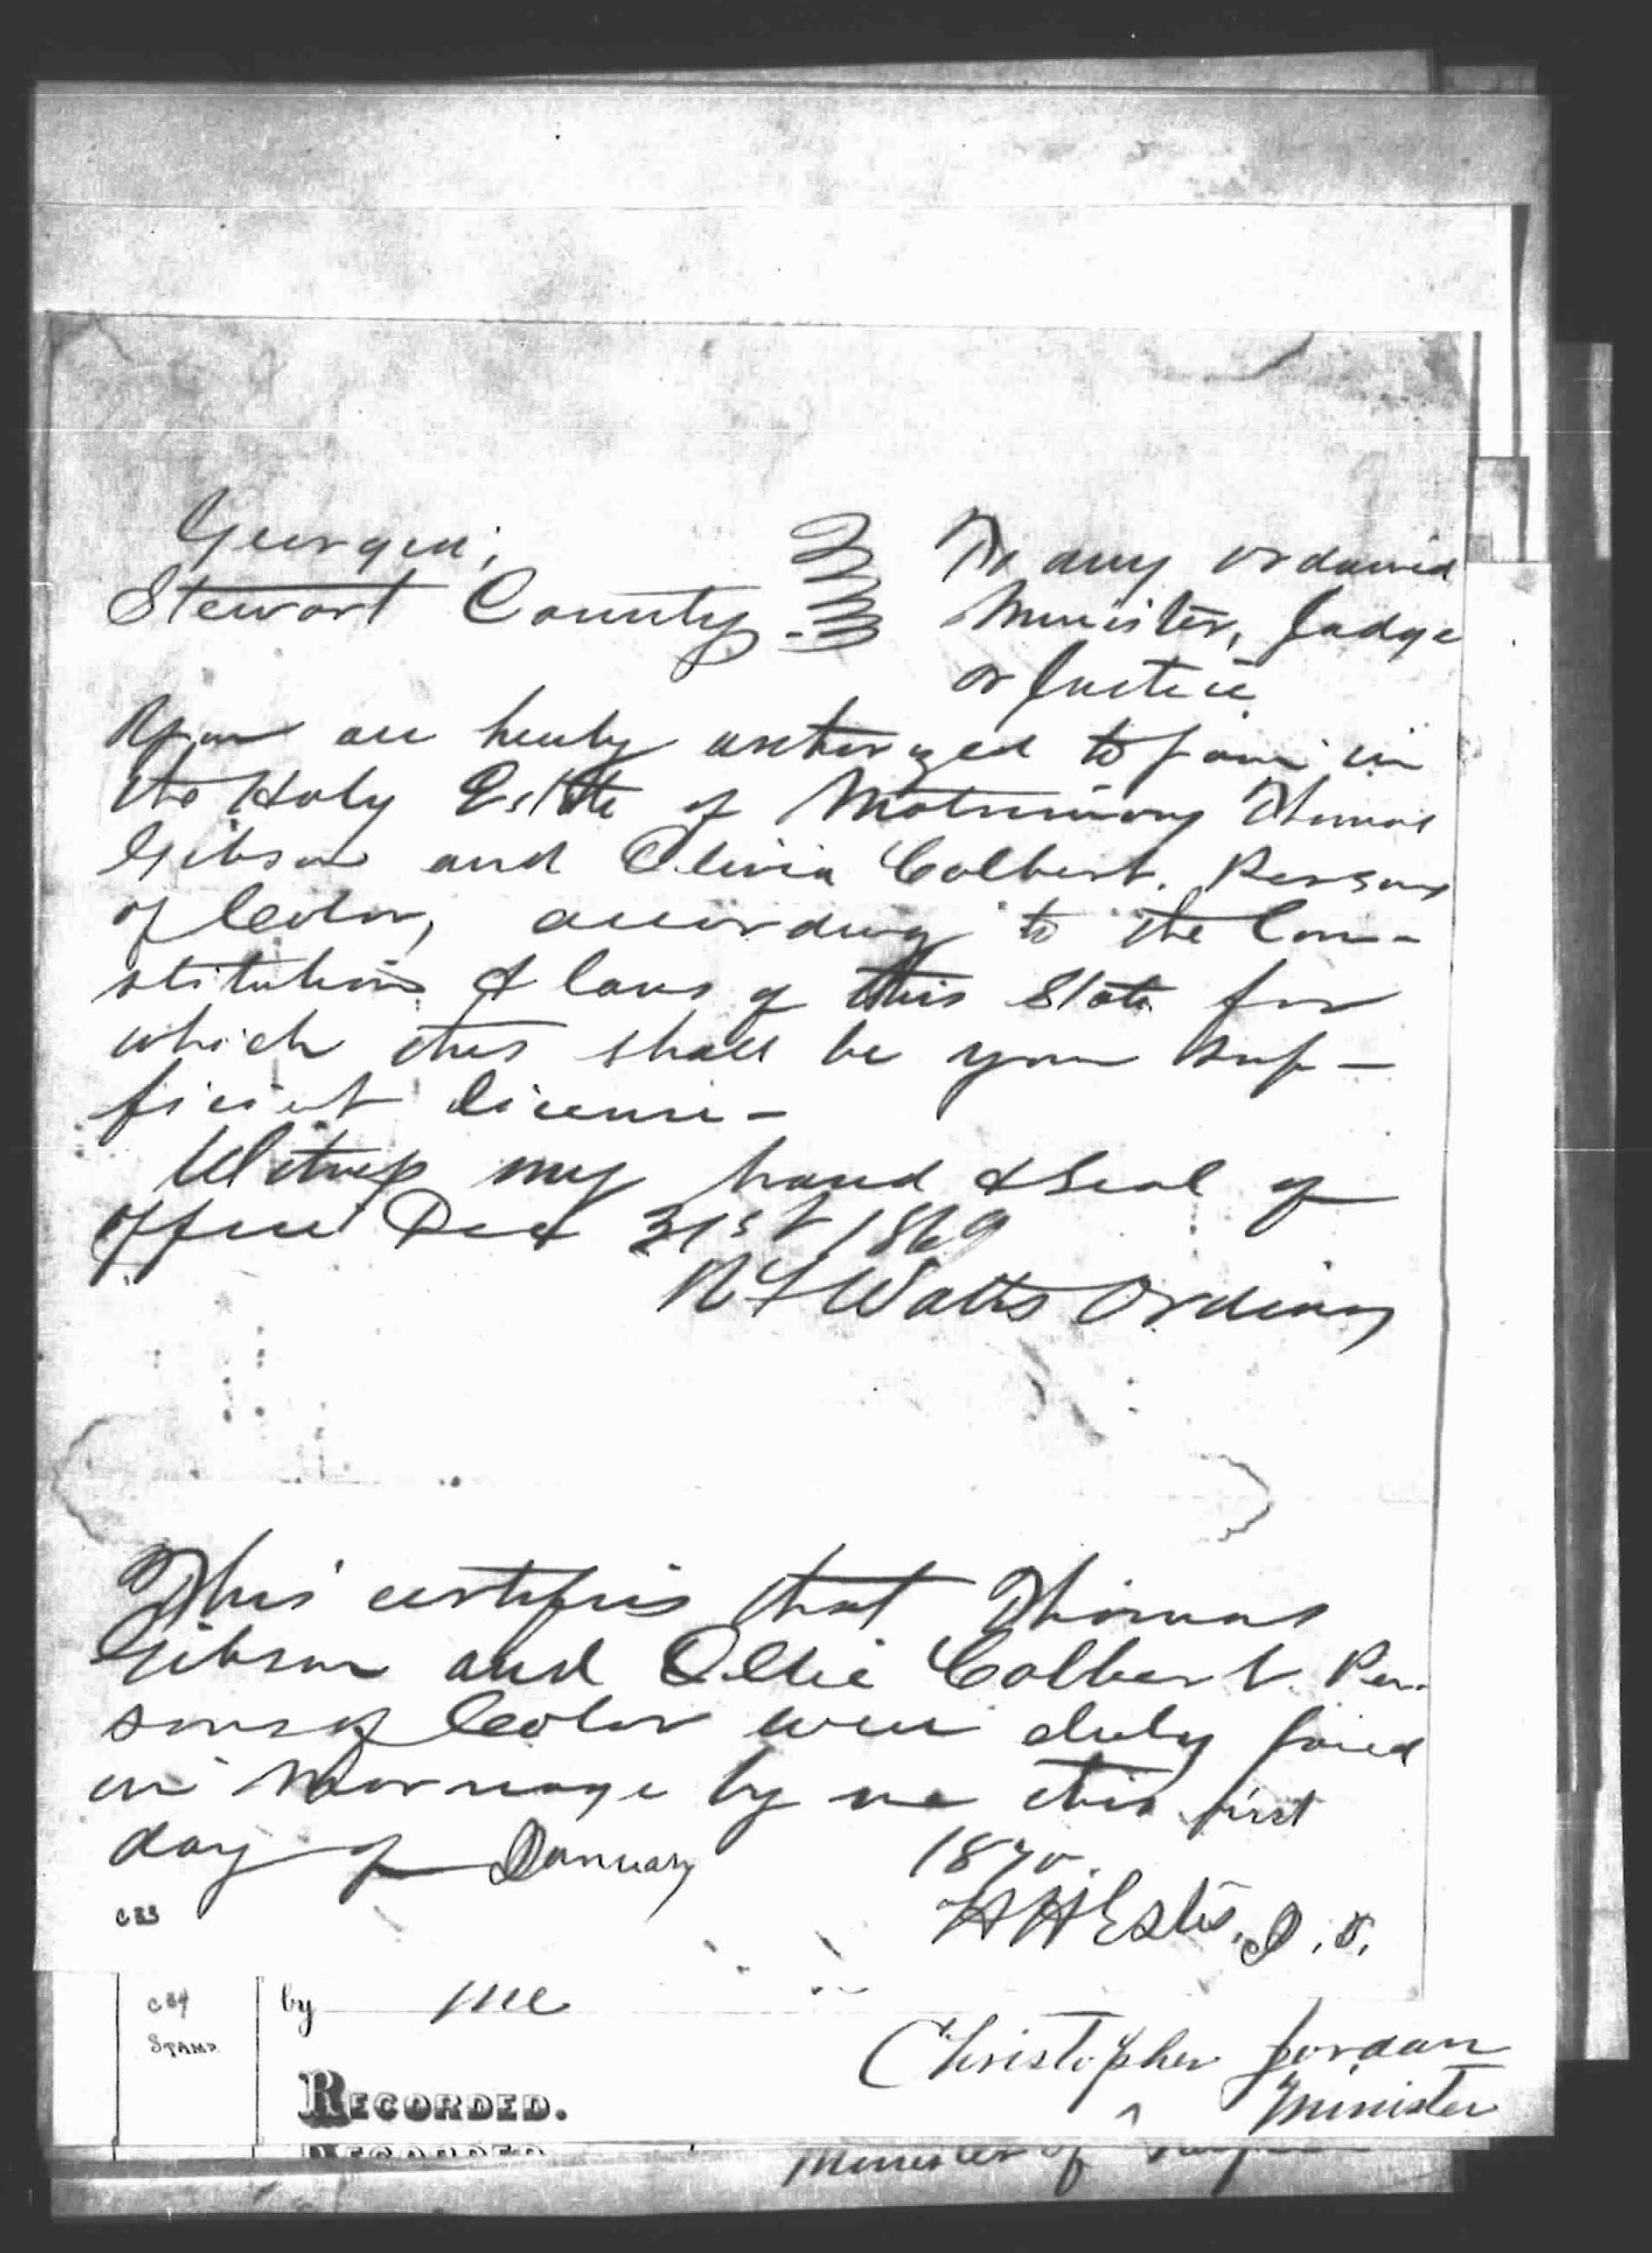 Georgia;
Stewart County.
To any ordained
Minister, Judge
or Justice
You are hereby authorized to join in
the Holy Estate of Matrimony Thomas
Gibson and Olivia Colbert. Persons
of Color, according to the Con-
stitution & laws of this State for
which this shall be your suf-
ficient license-
Witness my hand & Seal of
office Dec 31st 1869
Watts Ordinary
This certifies that Thomas
Gibson and Ollie Colbert. Per-
sons of Color were duly joined
in Marriage by me this first
day of January 1870.
H H Estes, J.P.
C33
C34
STAMP
by me
Christopher Jordan
Minister
RECORDED.
RECORDED
Minister of